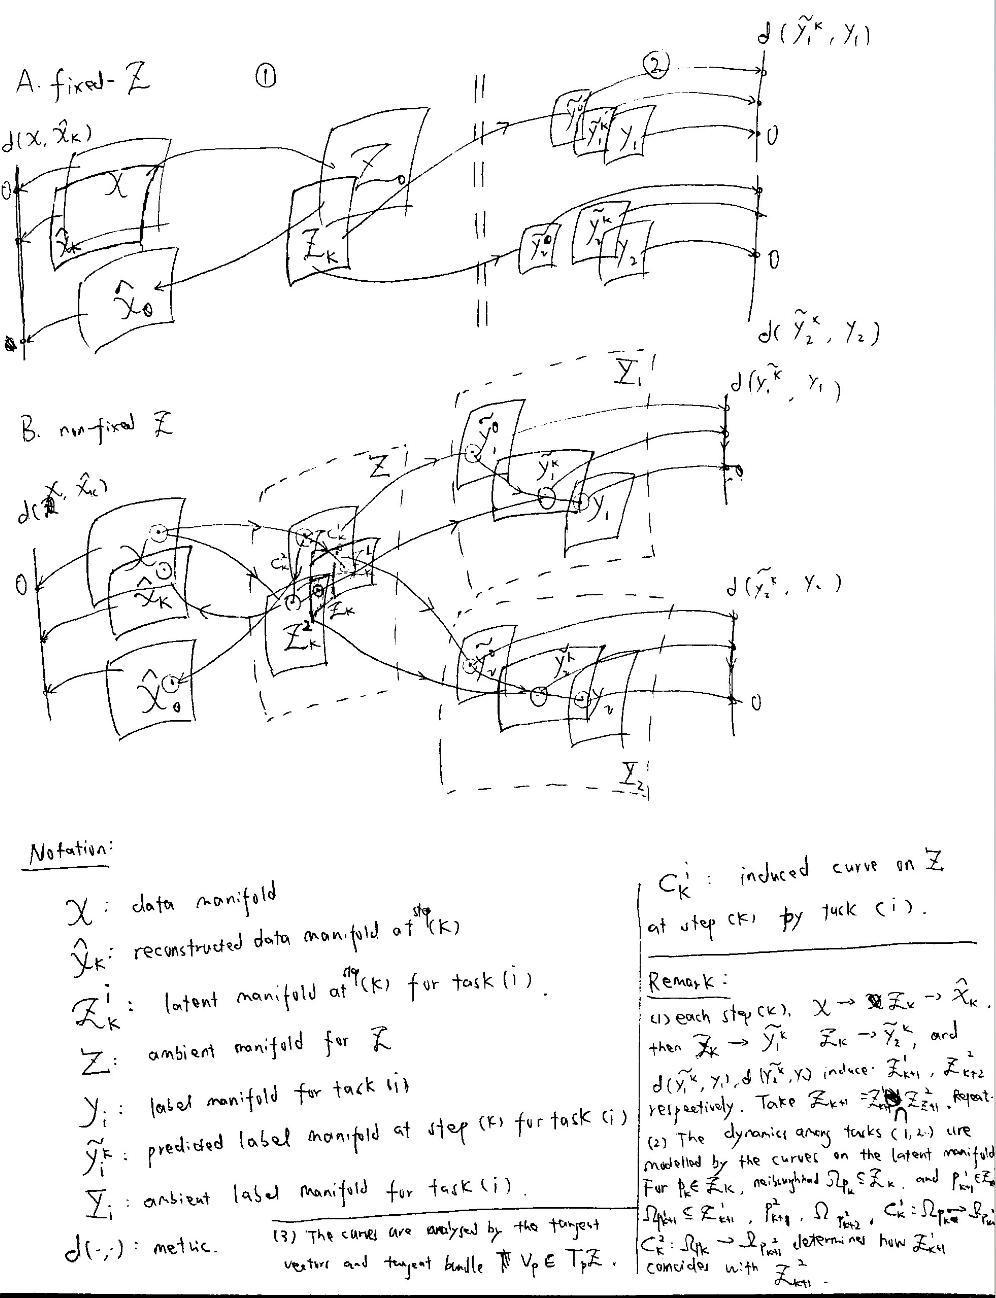 d(ỹ₁ᵏ, y₁)
A. fixed-Z
①
②
d(x, x̂ₖ)
0
X
x̂ₖ
x̂₀
Z
Zₖ
ỹ₁⁰
ỹ₁ᵏ
y₁
0
ỹ₂⁰
ỹ₂ᵏ
y₂
0
d(ỹ₂ᵏ, y₂)
B. non-fixed Z
d(ỹ₁ᵏ, y₁)
Y₁
d(x, x̂ₖ)
0
X
x̂ₖ
x̂₀
Z
Cₖ¹
Cₖ²
Zₖ¹
Zₖ
Zₖ²
ỹ₁⁰
ỹ₁ᵏ
y₁
0
d(ỹ₂ᵏ, y₂)
ỹ₂⁰
ỹ₂ᵏ
y₂
0
Y₂
Notation:
X : data manifold
x̂ₖ: reconstructed data manifold at step (k)
Zₖⁱ : latent manifold at step (k) for task (i).
Z : ambient manifold for Z
yᵢ : label manifold for task (i)
ỹᵢᵏ : predicted label manifold at step (k) for task (i)
Yᵢ : ambient label manifold for task (i).
d(·,·) : metric.
(3) The curves are analysed by the tangent
vectors and tangent bundle Vₚ ∈ TₚZ.
Cₖⁱ : induced curve on Z
at step (k) by task (i).
Remark:
(1) each step (k), X → Zₖ → x̂ₖ.
then Zₖ → ỹ₁ᵏ Zₖ → ỹ₂ᵏ, and
d(ỹ₁ᵏ, y₁), d(ỹ₂ᵏ, y₂) induce Z¹ₖ₊₁, Z²ₖ₊₂
respectively. Take Zₖ₊₁ = Z¹ₖ₊₁ ∩ Z²ₖ₊₁. Repeat.
(2) The dynamics among tasks (1,2) are
modelled by the curves on the latent manifold
For pₖ ∈ Zₖ, neibourghhod Ωpₖ ⊆ Zₖ, and
Ωp¹ₖ₊₁ ⊆ Z¹ₖ₊₁, p²ₖ₊₁, Ωp²ₖ₊₂, Cₖ¹: Ωpₖ →
Cₖ²: Ωpₖ → Ωp²ₖ₊₁ determines how Z¹ₖ₊₁
concides with Z²ₖ₊₁.